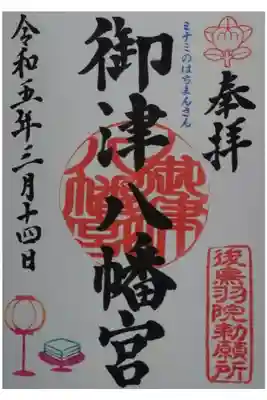 奉拝
ミナミのはちまんさん
御津八幡宮
令和五年三月十四日
後鳥羽院勅願所
御津八幡宮